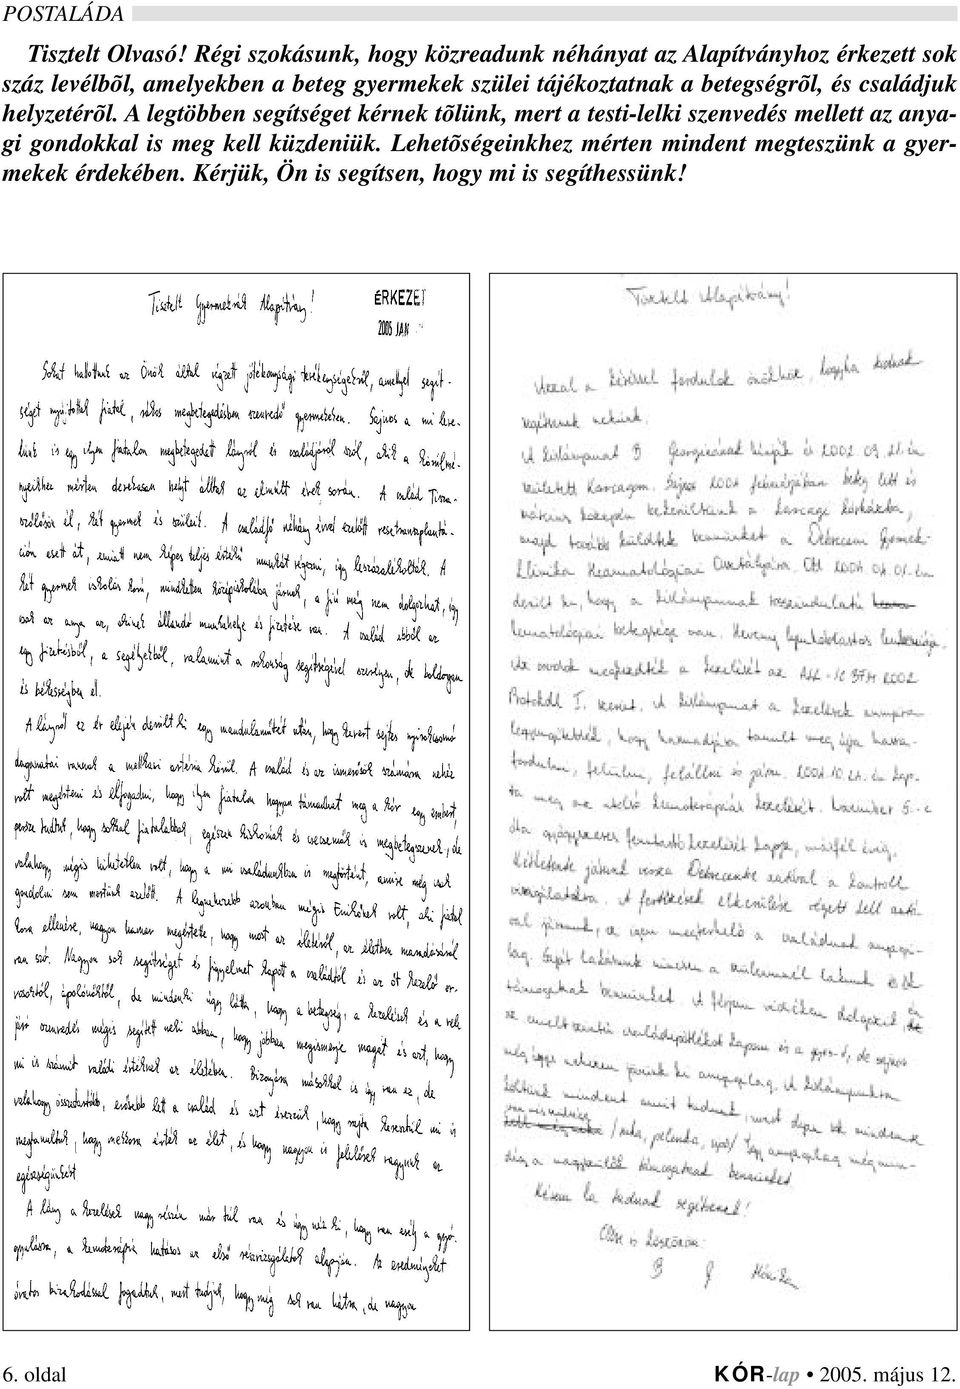 POSTALÁDA
Tisztelt Olvasó! Régi szokásunk, hogy közreadunk néhányat az Alapítványhoz érkezett sok
száz levélbõl, amelyekben a beteg gyermekek szülei tájékoztatnak a betegségrõl, és családjuk
helyzetérõl. A legtöbben segítséget kérnek tõlünk, mert a testi-lelki szenvedés mellett az anya-
gi gondokkal is meg kell küzdeniük. Lehetõségeinkhez mérten mindent megteszünk a gyer-
mekek érdekében. Kérjük, Ön is segítsen, hogy mi is segíthessünk!
Tisztelt Gyermekrák Alapítvány!
ÉRKEZET
2005 JAN
Sokat hallottunk az Önök által végzett jótékonysági tevékenységekről, amellyel segít-
séget nyújtottak fiatal, rákos megbetegedésben szenvedő gyermekeken. Sajnos a mi leve-
lünk is egy ilyen fiatalon megbetegedett lányról és családjáról szól, akik a körülmé-
nyekhez mérten derekasan helyt álltak az elmúlt évek során. A család Tisza-
szőlősön él, két gyermek és szüleik. A családfő néhány évvel ezelőtt vesetranszplantá-
ción esett át, emiatt nem képes teljes értékű munkát végezni, így leszázalékolták. A
két gyermek iskolás korú, mindketten középiskolába járnak, a fiú még nem dolgozhat, így
csak az anya az, akinek állandó munkahelye és fizetése van. A család ebből az
egy fizetésből, a segélyekből, valamint a rokonság segítségével szerényen, de boldogan
és békességben él.
A lányról ez év elején derült ki egy mandulaműtét után, hogy kevert sejtes nyirokcsomó
daganatai vannak a mellkasi artéria körül. A család és az ismerősök számára nehéz
volt megérteni és elfogadni, hogy ilyen fiatalon hogyan támadhat meg a kór egy embert,
persze tudtuk, hogy sokkal fiatalabbak, egészen kiskorúak és csecsemők is megbetegszenek, de
valahogy mégis hihetetlen volt, hogy a mi családunkban is megtörtént, amire még csak
gondolni sem mertünk azelőtt. A legnehezebb azonban mégis Enikőnek volt, aki fiatal
kora ellenére, nagyon hamar megértette, hogy most az életéről, az életben maradásáról
van szó. Nagyon sok segítséget és figyelmet kapott a családtól és az őt kezelő or-
vosoktól, ápolónőktől, de mindenki úgy látta, hogy a betegség, a kezelések és a vele
járó szenvedés mégis segített neki abban, hogy jobban megismerje magát és azt, hogy
mi is számít valódi értéknek az életében. Bizonyára másokkal is így van ez, de
valahogy összetartóbb, erősebb lett a család és azt érezzük, hogy rajta keresztül mi is
megtanultuk, hogy mekkora érték az élet, és hogy nagyon is felelősek vagyunk az
egészségünkért
A lány a kezelések nagy részén már túl van és úgy néz ki, hogy van esély a gyó-
gyulásra, a kemoterápia hatásos az első részvizsgálatok alapján. Az eredményeket
óvatos bizakodással fogadtuk, mert tudjuk, hogy még sok van hátra, de nagyon
Tisztelt Alapítvány!
Azzal a kéréssel fordulok önökhöz, hogyha tudnak
segítsenek nekünk.
A kislányomat B Georginának hívják és 2002 09. 21.-én
született Karcagon. Sajnos 2004 februárjában beteg lett és
március közepén bekerültünk a karcagi kórházba,
majd tovább küldtek bennünket a Debreceni Gyermek-
klinika Heamatológiai Osztályára. Ott 2004 04. 01.-én
derült ki, hogy a kislányomnak rosszindulatú
hematológiai betegsége van.
Az orvosok megkezdték a kezelését az ALL-IC BFM 2002
Protokoll I. szerint. A kislányomat a kezelések annyira
legyengítették, hogy harmadjára tanult meg újra
fordulni, felülni, felállni és járni. 2004. 10. 21.-én kap-
ta meg az utolsó kemoterápiás kezelését. November 5.-e
óta gyógyszeres fenntartó kezelését kapja, másfél évig.
Kéthetente járunk vissza Debrecenbe autóval a kontroll
vizsgálatokra. A fertőzések elkerülése végett kell autó-
val járnunk, ez igen megterhelő a családnak anyagi-
lag. Saját lakásunk nincsen a szüleimnél lakunk
támogatnak bennünket. A férjem vidéken dolgozik, én
az emelt szintű családipótlékot kapom és a gyes-t, de sajnos
még így nehezen járunk ki anyagilag. A kislányunkra
költünk mindent amit tudunk, most épp
/ruha, pelenka,
a nagyszülők támogatnak bennünket
Kérem ha tudnak segítsenek!
Előre is köszönöm:
B G Mónika
6. oldal
KÓR-lap • 2005. május 12.